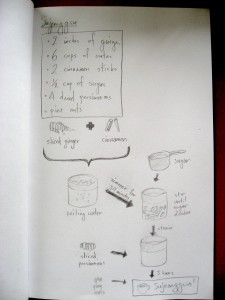 Sujeonggwa
• 2 inches of ginger
• 6 cups of water
• 2 cinnamon sticks
• ½ cup of sugar
• 4 dried persimmons
• pine nuts
sliced ginger
+
cinnamon
sugar
simmer for
boiling water
stir until sugar dilutes
strain
sliced persimmons
2 hours
pine nuts
Sujeonggwa!